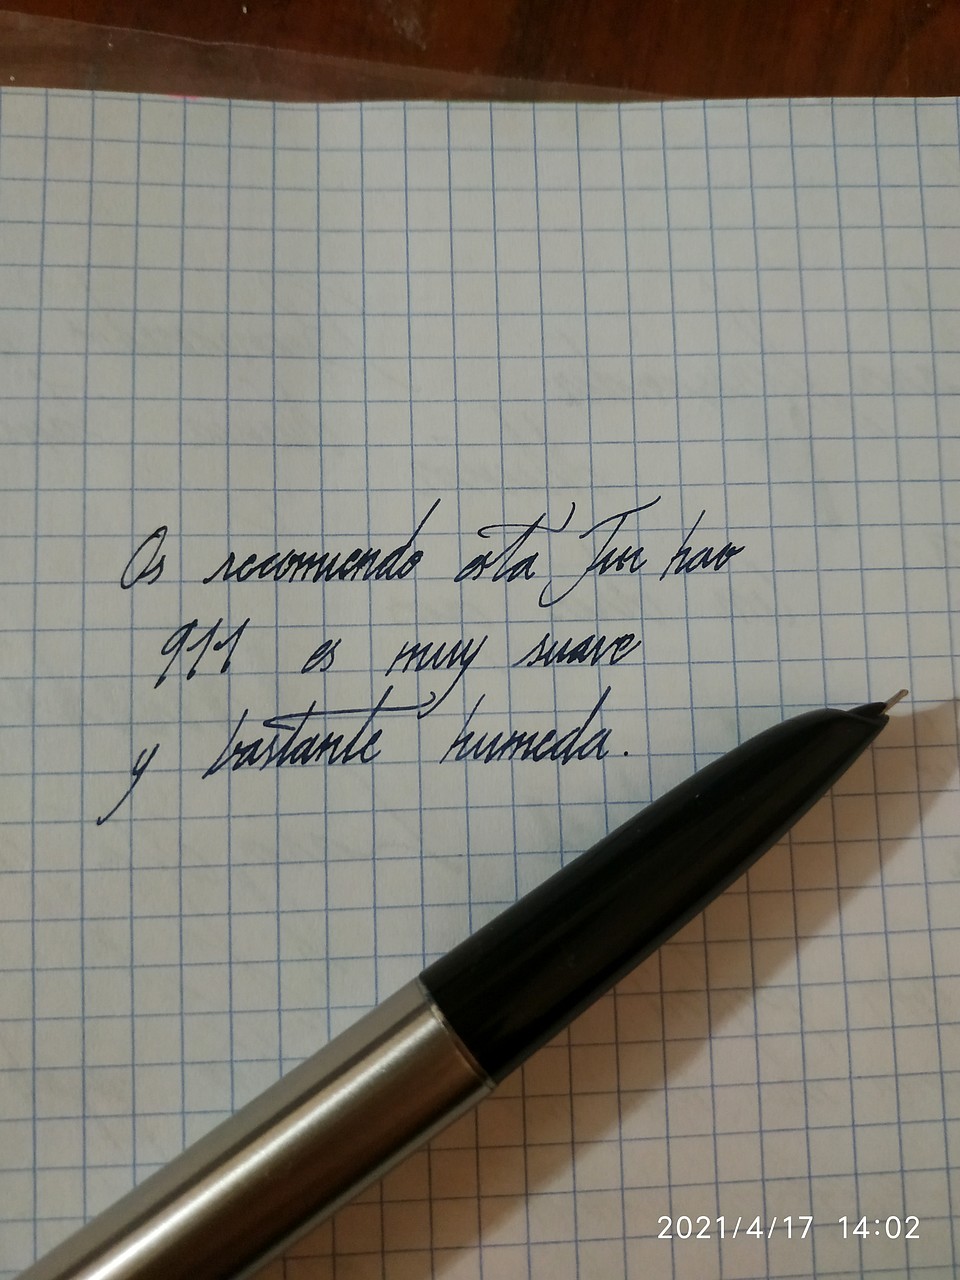 Os recomiendo esta Jin hao
911 es muy suave
y bastante humeda.
2021/4/17 14:02